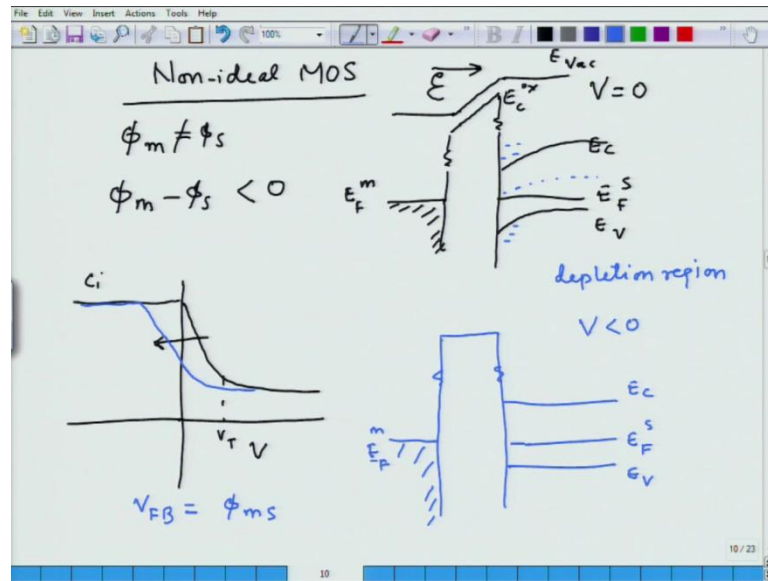 File Edit View Insert Actions Tools Help
100%
B I
Non-ideal MOS
ϕm ≠ ϕs
ϕm - ϕs < 0
ℰ
Evac
V = 0
Ec^ox
Ec
EF^m
EF^s
Ev
depletion region
V < 0
Ci
VT V
VFB = ϕms
Ec
EF^m
EF^s
Ev
10 / 23
10